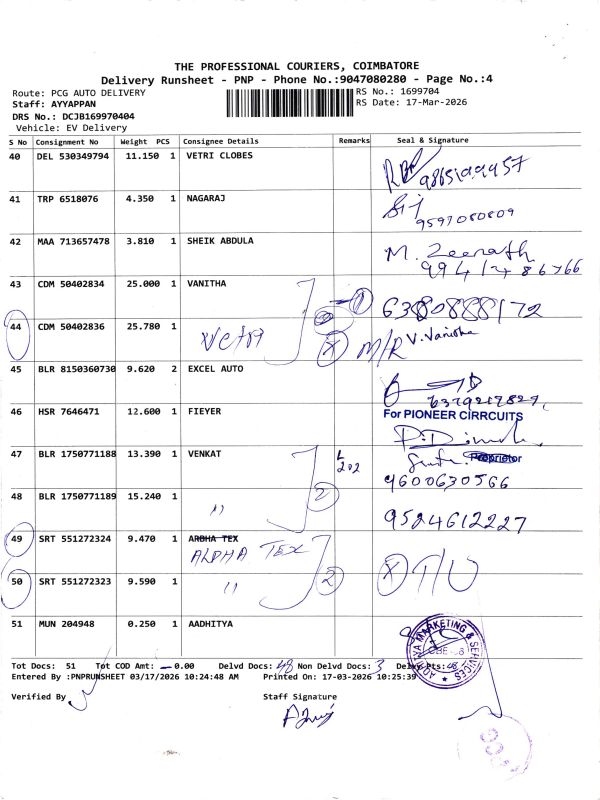 THE PROFESSIONAL COURIERS, COIMBATORE
Delivery Runsheet - PNP - Phone No.:9047080280 - Page No.:4
Route: PCG AUTO DELIVERY
RS No.: 1699704
Staff: AYYAPPAN
RS Date: 17-Mar-2026
DRS No.: DCJB169970404
Vehicle: EV Delivery
S No Consignment No Weight PCS Consignee Details Remarks Seal & Signature
40 DEL 530349794 11.150 1 VETRI CLOBES
41 TRP 6518076 4.350 1 NAGARAJ
9597080809
42 MAA 713657478 3.810 1 SHEIK ABDULA M. Zeenath
9941486766
43 CDM 50402834 25.000 1 VANITHA 1
6380888172
44 CDM 50402836 25.780 1 X M/R V. Vanitha
45 BLR 8150360730 9.620 2 EXCEL AUTO
6379217829
46 HSR 7646471 12.600 1 FIEYER For PIONEER CIRRCUITS
Proprietor
47 BLR 1750771188 13.390 1 VENKAT L 202
9600630566
48 BLR 1750771189 15.240 1 " 2 9524612227
49 SRT 551272324 9.470 1 ARBHA TEX
ALPHA TEX
50 SRT 551272323 9.590 1 " 2 X
51 MUN 204948 0.250 1 AADHITYA
ADITYA MARKETING & SERVICES
Tot Docs: 51 Tot COD Amt: 0.00 Delvd Docs: 48 Non Delvd Docs: 3 Delvy Pts: 48
Entered By :PNPRUNSHEET 03/17/2026 10:24:48 AM Printed On: 17-03-2026 10:25:39
Verified By
Staff Signature